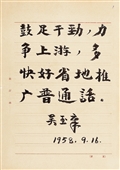 鼓足干劲，力
争上游，多
快好省地推
广普通話．
吴玉章
1958.9.16.